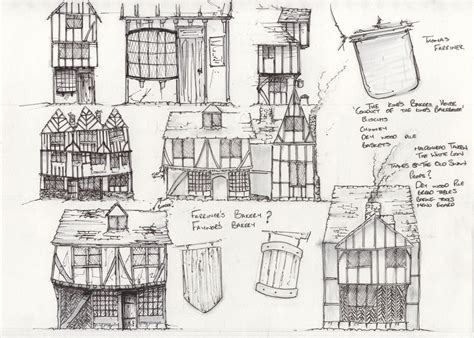 Thomas
Farriner
The King's Bakers House
'Conduct of the King's Bakehouse'
Biscuits
Chimney
Dry Wood Pile
Baskets
Tavern
The White Lion
The Old Swan
Props?
Dry Wood Pile
Bread Tables
Menu Board
Farriner's Bakery
Faynor's Bakery
?